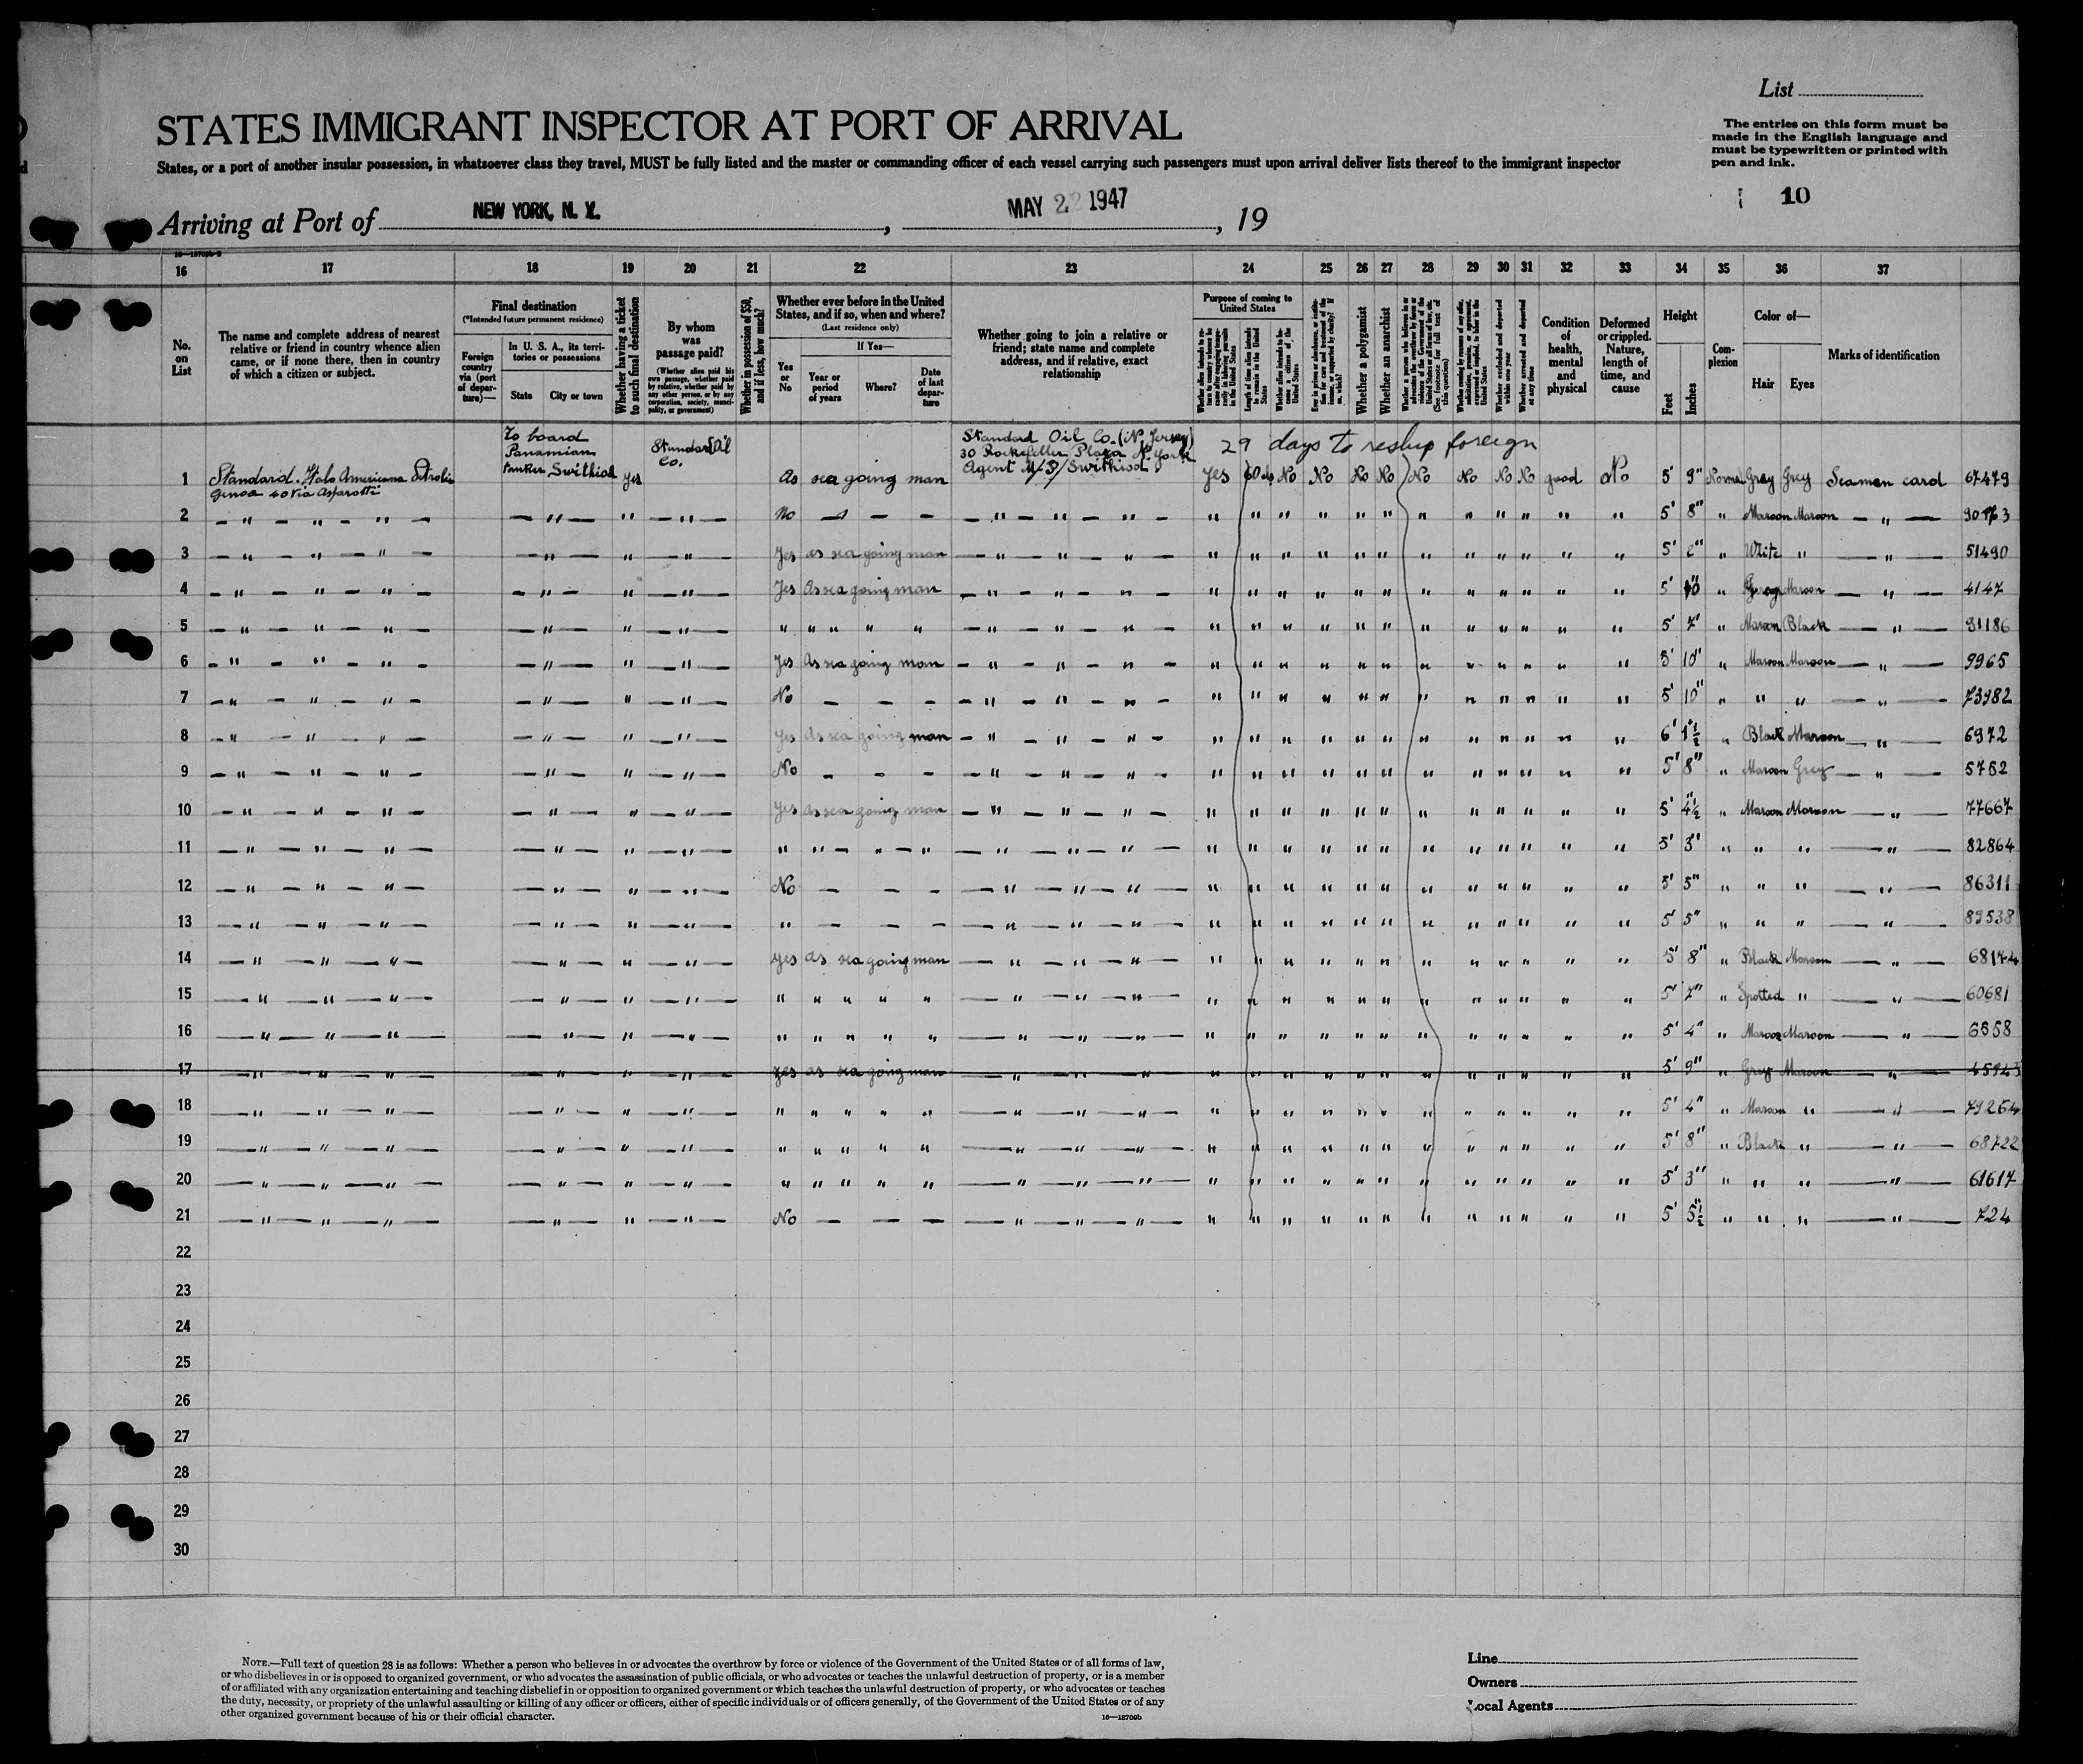 List
STATES IMMIGRANT INSPECTOR AT PORT OF ARRIVAL
The entries on this form must be
made in the English language and
must be typewritten or printed with
pen and ink.
States, or a port of another insular possession, in whatsoever class they travel, MUST be fully listed and the master or commanding officer of each vessel carrying such passengers must upon arrival deliver lists thereof to the immigrant inspector
10
Arriving at Port of NEW YORK, N. Y. , MAY 22 1947 , 19
16 17 18 19 20 21 22 23 24 25 26 27 28 29 30 31 32 33 34 35 36 37
No. on List
The name and complete address of nearest
relative or friend in country whence alien
came, or if none there, then in country
of which a citizen or subject.
Final destination
(*Intended future permanent residence)
Foreign country via (port of departure)—
In U. S. A., its territories or possessions
State City or town
Whether having a ticket to such final destination
By whom was passage paid?
(Whether alien paid his own passage, whether paid by relative, whether paid by any other person, or by any corporation, society, municipality, or government)
Whether in possession of $50, and if less, how much?
Whether ever before in the United
States, and if so, when and where?
(Last residence only)
Yes or No
If Yes—
Year or period of years
Where?
Date of last departure
Whether going to join a relative or
friend; state name and complete
address, and if relative, exact
relationship
Purpose of coming to United States
Length of time alien intends to remain in the United States
Whether alien intends to become a citizen of the United States
Whether a polygamist
Whether an anarchist
Whether excluded and deported within one year
Whether arrested and deported at any time
Condition of health, mental and physical
Deformed or crippled. Nature, length of time, and cause
Height
Feet Inches
Complexion
Color of—
Hair Eyes
Marks of identification
To board Panamian tanker Swithiod
Standard Oil Co.
Standard Oil Co. (N. Jersey)
30 Rockefeller Plaza N. York
Agent M/S/ Swithiod
29 days to reship foreign
1 Standard. Italo Americana yes As sea going man Yes 60 ds No No No No No No No No good No 5' 9" Gray Grey Seaman card 67479
Genoa 40 Via
2 — " — " — " — — " — " — " — No — — — — " — " — " — " " " " " " " " " " " " 5' 8" " Maroon Maroon — " —
3 — " — " — " — — " — " — " — Yes as sea going man — " — " — " — " " " " " " " " " " " " 5' 2" " White " — " — 51490
4 — " — " — " — — " — " — " — Yes As sea going man — " — " — " — " " " " " " " " " " " " 5' 10" " Maroon — " — 4147
5 — " — " — " — — " — " — " — " " " " " — " — " — " — " " " " " " " " " " " " 5' 7" " Maroon Black — " — 91186
6 — " — " — " — — " — " — " — Yes As sea going man — " — " — " — " " " " " " " " " " " " 5' 10" " Maroon Maroon — " — 9965
7 — " — " — " — — " — " — " — No — — — — " — " — " — " " " " " " " " " " " " 5' 10" " " " — " — 73982
8 — " — " — " — — " — " — " — Yes As sea going man — " — " — " — " " " " " " " " " " " " 6' 1½" " Black Maroon — " — 6972
9 — " — " — " — — " — " — " — No — — — — " — " — " — " " " " " " " " " " " " 5' 8" " Maroon Grey — " — 5752
10 — " — " — " — — " — " — " — Yes As sea going man — " — " — " — " " " " " " " " " " " " 5' 4½" " Maroon Maroon — " — 77667
11 — " — " — " — — " — " — " — " " " — " — " — " — " — " — " " " " " " " " " " " " 5' 3" " " " — " — 82864
12 — " — " — " — — " — " — " — No — — — — " — " — " — " " " " " " " " " " " " 5' 5" " " " — " — 86311
13 — " — " — " — — " — " — " — " — — — — " — " — " — " " " " " " " " " " " " 5' 5" " " " — " — 89538
14 — " — " — " — — " — " — " — yes as sea going man — " — " — " — " " " " " " " " " " " " 5' 8" " Black Maroon — " —
15 — " — " — " — — " — " — " — " " " " " — " — " — " — " " " " " " " " " " " " 5' 7" " Spotted " — " — 60681
16 — " — " — " — — " — " — " — " " " " " — " — " — " — " " " " " " " " " " " " 5' 4" " Maroon Maroon — " — 6858
17 — " — " — " — — " — " — " — yes as sea going man — " — " — " — " " " " " " " " " " " " 5' 9" " Grey Maroon — " —
18 — " — " — " — — " — " — " — " " " " " — " — " — " — " " " " " " " " " " " " 5' 4" " Maroon " — " — 79264
19 — " — " — " — — " — " — " — " " " " " — " — " — " — " " " " " " " " " " " " 5' 8" " Black " — " — 68722
20 — " — " — " — — " — " — " — " " " " " — " — " — " — " " " " " " " " " " " " 5' 3" " " " — " — 61617
21 — " — " — " — — " — " — " — No — — — — " — " — " — " " " " " " " " " " " " 5' 5½" " " " — " — 724
22
23
24
25
26
27
28
29
30
NOTE.—Full text of question 28 is as follows: Whether a person who believes in or advocates the overthrow by force or violence of the Government of the United States or of all forms of law,
or who disbelieves in or is opposed to organized government, or who advocates the assassination of public officials, or who advocates or teaches the unlawful destruction of property, or is a member
of or affiliated with any organization entertaining and teaching disbelief in or opposition to organized government or which teaches the unlawful destruction of property, or who advocates or teaches
the duty, necessity, or propriety of the unlawful assaulting or killing of any officer or officers, either of specific individuals or of officers generally, of the Government of the United States or of any
other organized government because of his or their official character.
16—18709b
Line
Owners
Local Agents